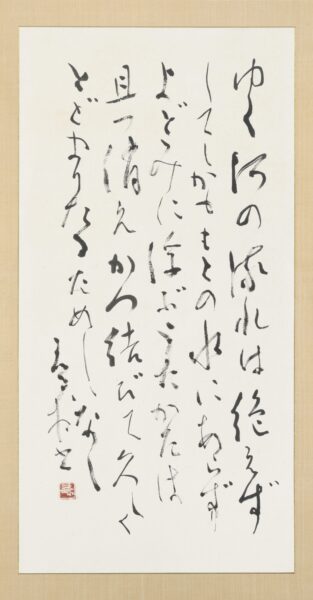 ゆく河の流れは絶えず
してしかももとの水にあらず
よどみに浮ぶうたかたは
且つ消えかつ結びて久しく
とどまりたるためしなし